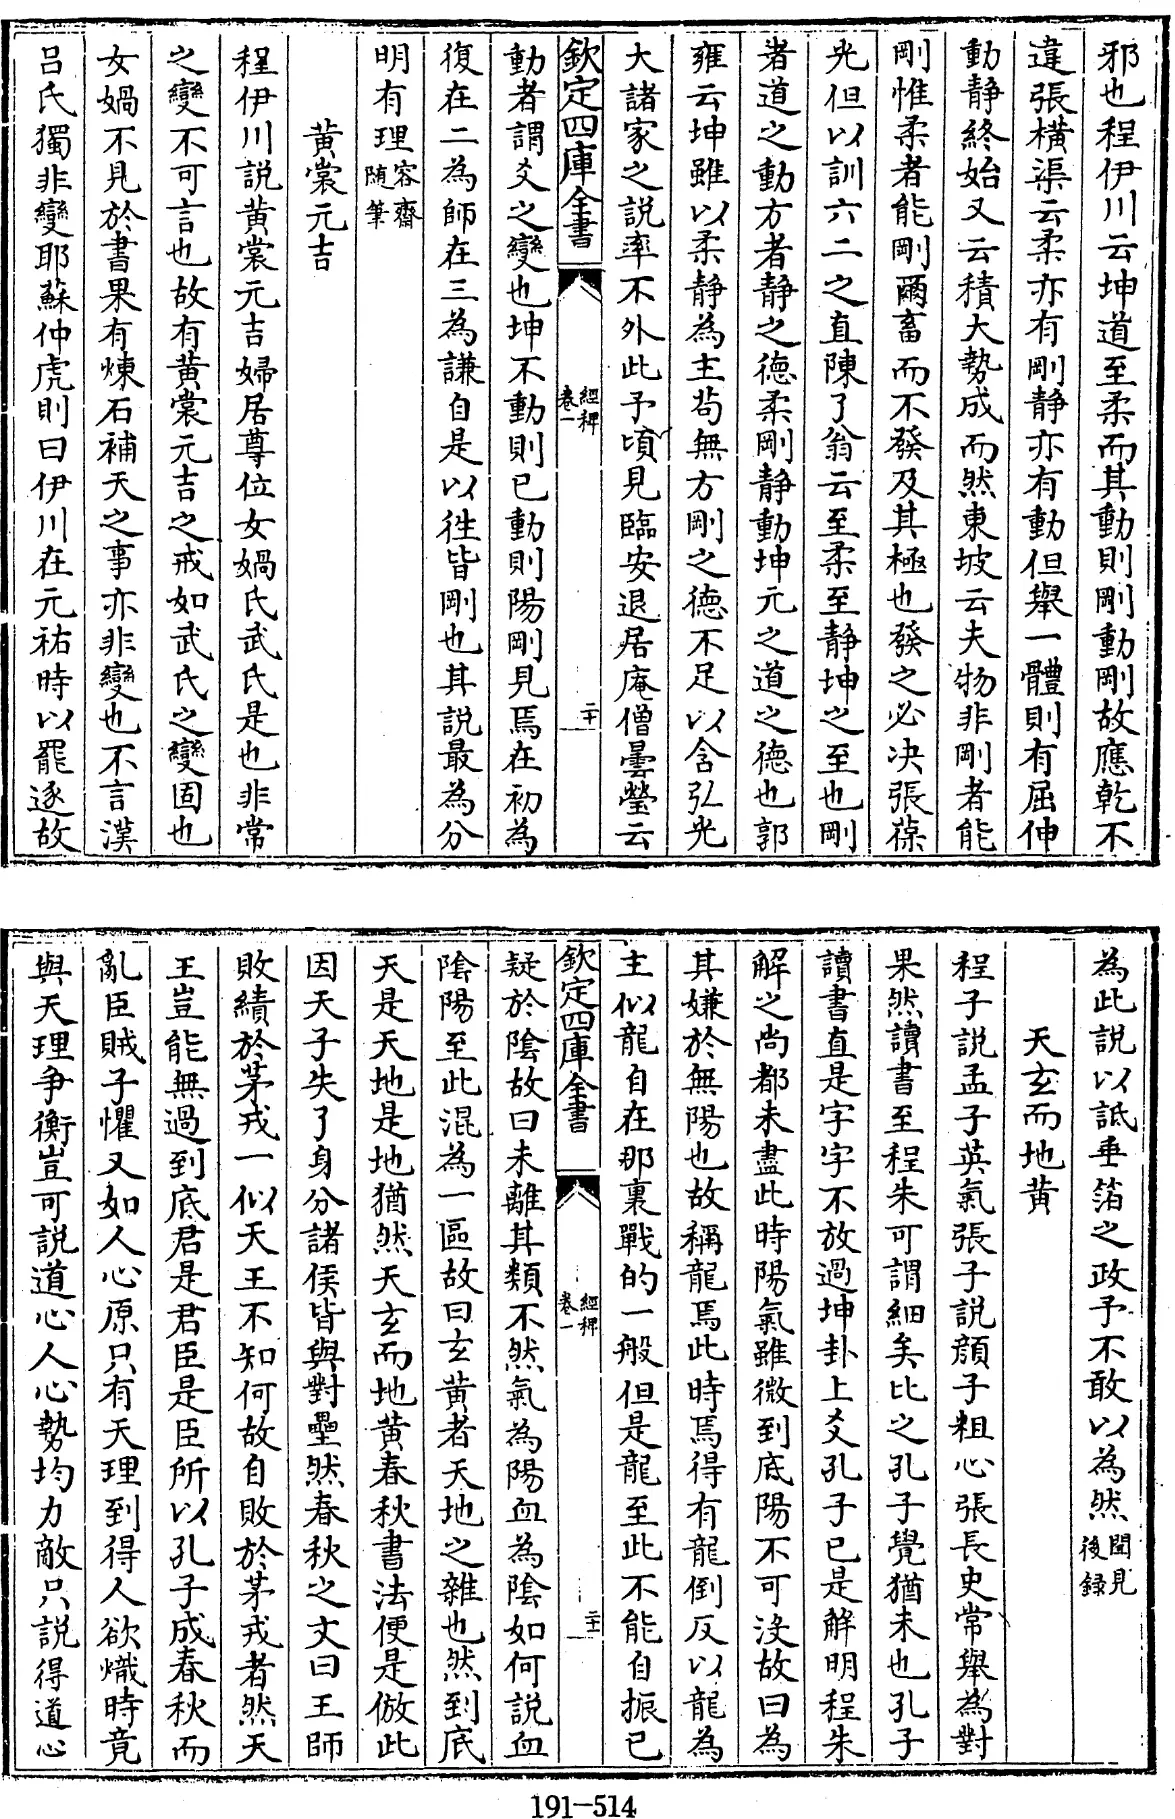 邪也程伊川云坤道至柔而其動則剛動剛故應乾不
違張橫渠云柔亦有剛靜亦有動但舉一體則有屈伸
動靜終始又云積大勢成而然東坡云夫物非剛者能
剛惟柔者能剛爾畜而不發及其極也發之必決張葆
光但以訓六二之直陳了翁云至柔至靜坤之至也剛
者道之動方者靜之德柔剛靜動坤元之道之德也郭
雍云坤雖以柔靜為主茍無方剛之德不足以含弘光
大諸家之說率不外此予頃見臨安退居庵僧曇瑩云
欽定四庫全書
經稗
卷一
二十
動者謂爻之變也坤不動則已動則陽剛見焉在初為
復在二為師在三為謙自是以徃皆剛也其說最為分
明有理容齋
隨筆
黃裳元吉
程伊川說黃裳元吉婦居尊位女媧氏武氏是也非常
之變不可言也故有黃裳元吉之戒如武氏之變固也
女媧不見於書果有煉石補天之事亦非變也不言漢
呂氏獨非變耶蘇仲虎則曰伊川在元祐時以罷逐故
為此說以詆垂箔之政予不敢以為然聞見
後録
天玄而地黃
程子說孟子英氣張子說顏子粗心張長史常舉為對
果然讀書至程朱可謂細矣比之孔子覺猶未也孔子
讀書直是字字不放過坤卦上爻孔子已是解明程朱
解之尚都未盡此時陽氣雖微到底陽不可沒故曰為
其嫌於無陽也故稱龍焉此時焉得有龍倒反以龍為
主似龍自在那裏戰的一般但是龍至此不能自振已
欽定四庫全書
經稗
卷一
二十一
疑於陰故曰未離其類不然氣為陽血為陰如何說血
陰陽至此混為一區故曰玄黃者天地之雜也然到底
天是天地是地猶然天玄而地黃春秋書法便是倣此
因天子失了身分諸侯皆與對壘然春秋之文曰王師
敗績於茅戎一似天王不知何故自敗於茅戎者然天
王豈能無過到底君是君臣是臣所以孔子成春秋而
亂臣賊子懼又如人心原只有天理到得人欲熾時竟
與天理爭衡豈可說道心人心勢均力敵只說得道心
191-514